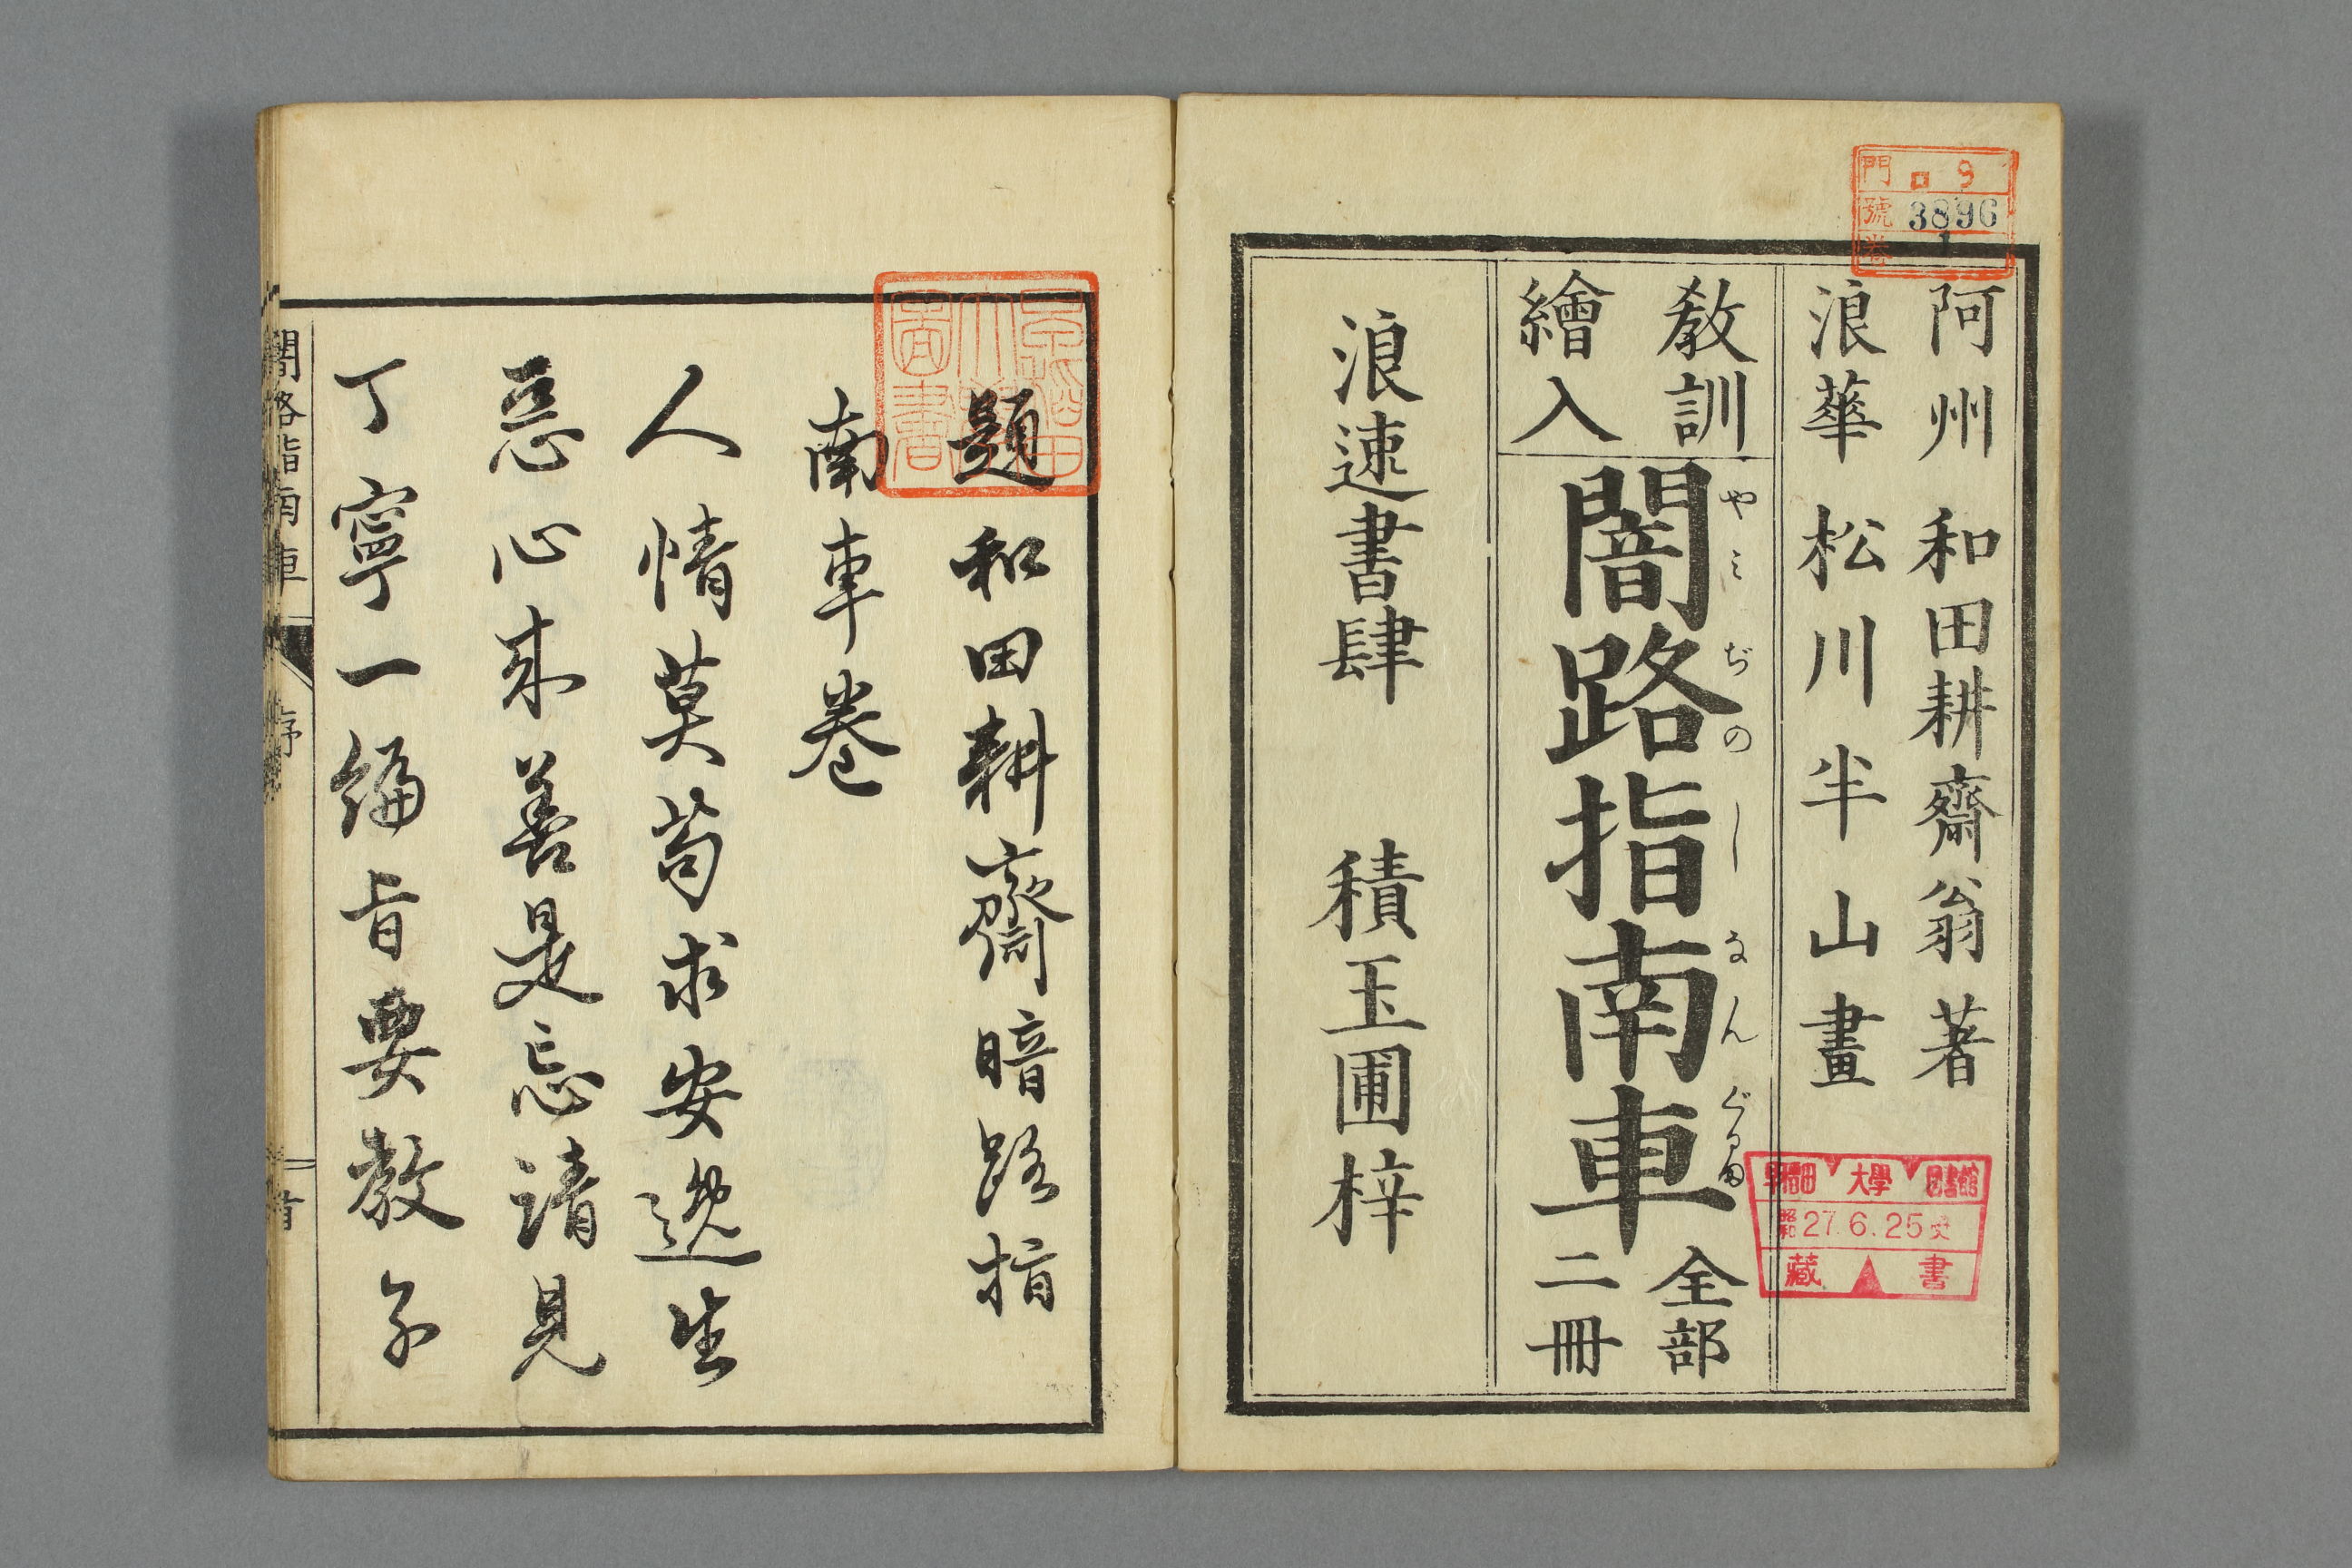 門 ロ9
號 3896
卷 1
阿州 和田耕齋翁著
浪華 松川半山畫
教訓
繪入
闇路指南車
やみぢのしなんぐるま
全部
二冊
浪速書肆 積玉圃梓
早稲田大學圖書館
昭和27.6.25
藏書
題和田耕齋暗路指
南車卷
人情莫苟求安逸生
惡心来善是忘請見
丁寧一編旨要教子
闇路指南車 序 一